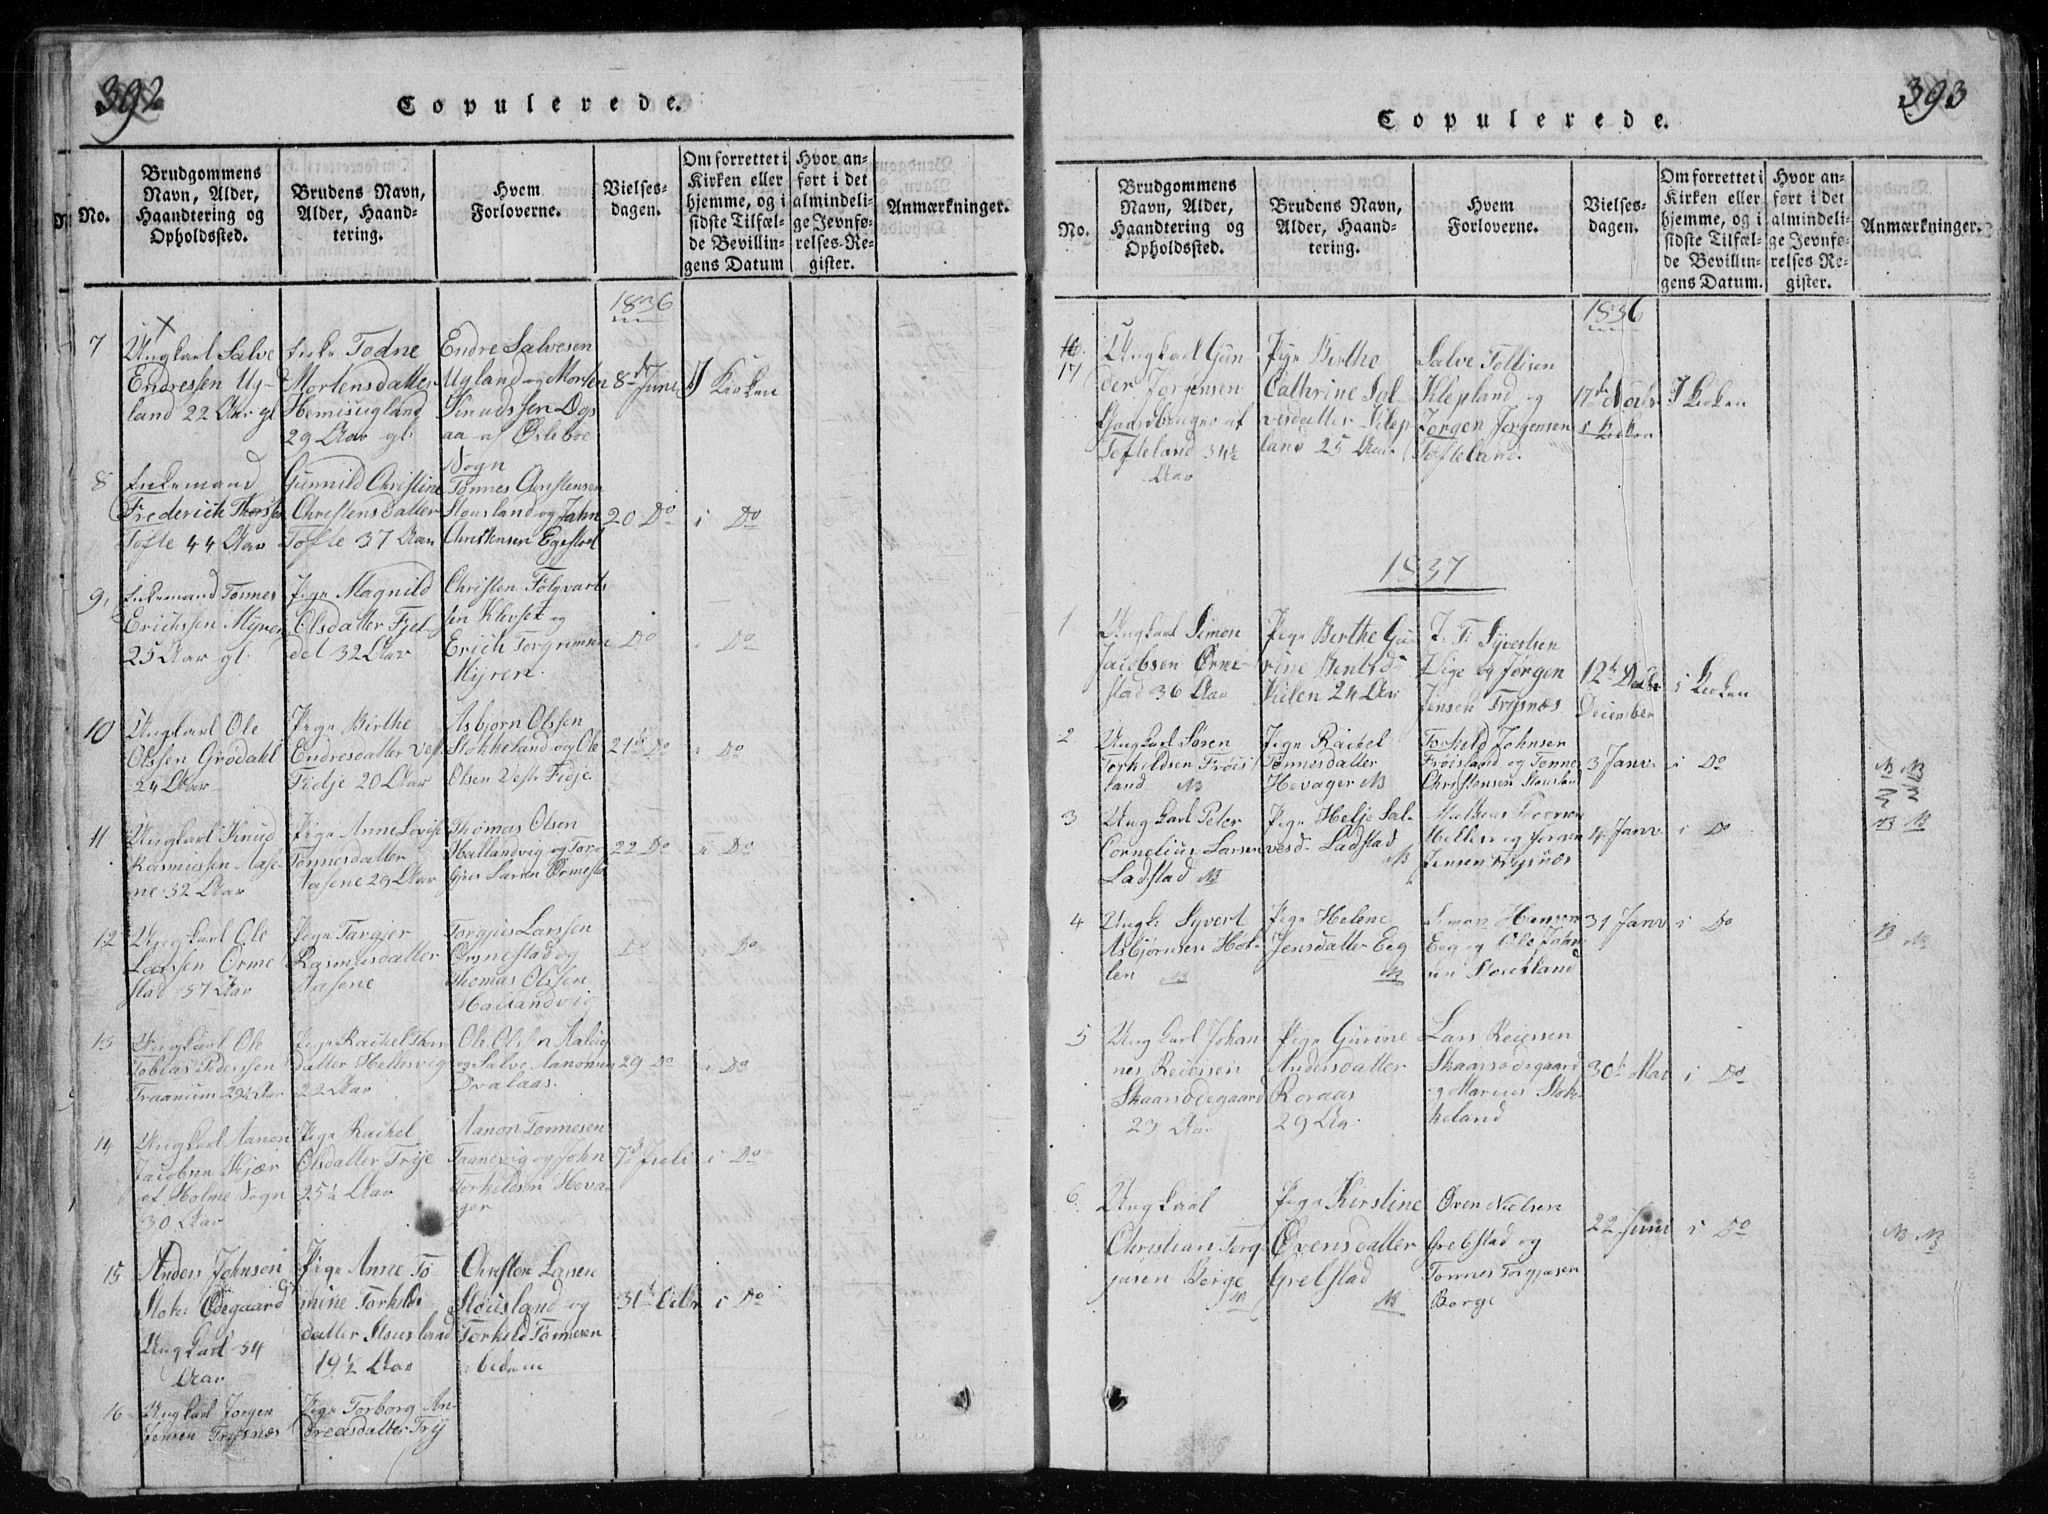 392
Copulerede.
No.
Brudgommens
Navn, Alder,
Haandtering og
Opholdssted.
Brudens Navn,
Alder, Haand-
tering.
Hvem
Forloverne.
Vielses-
dagen.
Om forrettet i
Kirken eller
hjemme, og i
sidste Tilfæl-
de Bevillin-
gens Datum
Hvor an-
ført i det
almindeli-
ge Jevnfø-
relses-Re-
gister.
Anmærkninger.
1836
7
Ungkarl Salve
Endressen Ug-
land 22 Aar gl.
Enke Todne
Mortensdatter
Hemisugland
29 Aar gl.
Endre Salvesen
Ugland og Morten
Knudssen
aa af Øslebøe
Sogn
8de Juni
I Kirken
8
Enkemand
Frederich
Tofte 44 Aar
Gunnild Christine
Christensdatter
Tofte 37 Aar
Tønnes Christensen
Stousland og John
Christensen Egestøel
20 Do
i Do
9
Enkemand Tønnes
Erichssen Myren
25 Aar gl.
Pige Magnild
Olsdatter Fjel-
del 32 Aar
Christen Folqvarts
sen Klevset og
Erich Torgrimsen
Myren.
Do
Do
10
Ungkarl Ole
Olssen Grødahl
24 Aar
Pige Birthe
Endresdatter Vest
Fidje 20 Aar
Asbjørn Olssen
Stokkeland og Ole
Olsen Vest Fidje
21de Do
Do
11
Ungkarl Knud
Rasmussen Aase-
ne 32 Aar
Pige Anne Lovise
Tønnesdatter
Aasene 29 Aar
Thomas Olsen
Hallandvig og Tor-
gius Larsen Ørmesta
22 Do
Do
12
Ungkarl Ole
Larssen Ørme
stad 37 Aar
Pige Targjer
Rasmusdatter
Aasene
Torgjus Larssen
Ørmestad og
Thomas Olssen
Hallandvig
Do
Do
13
Ungkarl Ole
Tobias Pederssen
Traanum 29½ Aar
Pige Rachel
datter Hellesvig
22 Aar
Ole Olsen
og Salve Aanonsen
Dvalaas.
29 Do
i Do
14
Ungkarl Aanon
Jacobsen Kjær
af Holme Sogn
30 Aar
Pige Rachel
Olsdatter Trije
25½ Aar
Aanon Tønnesen
Traanevig og John
Torkildsen Hova-
ger
7de Juli
i Do
15
Anders Johnsen
Stok: Ødegaard
Ungkarl 34
Aar
Pige Anne To-
mine Torkilds
datter Stousland
19½ Aar
Christen Larsen
Stousland og
Torkild Tønnesen
ibidem
31te Octbr
i Do
16
Ungkarl Jørgen
Jensen Trysnæs
Pige Torborg An-
dreasdatter Try
393
Copulerede.
No.
Brudgommens
Navn, Alder,
Haandtering og
Opholdssted.
Brudens Navn,
Alder, Haand-
tering.
Hvem
Forloverne.
Vielses-
dagen.
Om forrettet i
Kirken eller
hjemme, og i
sidste Tilfæl-
de Bevillin-
gens Datum.
Hvor an-
ført i det
almindeli-
ge Jevnfø-
relses-Re-
gister.
Anmærkninger.
1836
17
Ungkarl Gun-
der Jørgensen
Gaardbruger af
Tofteland 34½
Aar
Pige Birthe
Cathrine Sal
vesdatter Klep
land 25 Aar
Salve Tollisen
Klepland og
Jørgen Jørgensen
Tofteland.
17de Novbr
I Kirken
1837
1
Ungkarl Simon
Jacobsen Ørme-
stad 36 Aar
Pige Birthe Gu-
rine Bentsd-
Kilen 24 Aar
J. F. Syvertsen
og Jørgen
Jensen Trysnæs
12te
December
i Kirken
2
Ungkarl Søren
Torkildsen Frøis
land NB
Pige Rachel
Tønnesdatter
Hovager NB
Torkild Johnsen
Frøisland og Tønnes
Christensen Stousland
3 Janv.
i Do
NB NB
3
Ungkarl Peter
Cornelius Larsen
Ladstad NB
Pige Helje Sal-
vesd- Ladstad
NB
Mathias
Helle og Jørgen
Jensen Trysnæs
4 Janv.
i Do
NB NB
4
Ungk: Syvert
Asbjørnsen Hol-
len NB
Pige Helene
Jensdatter Eeg
NB
Simon Hansen
Eeg og Ole John
sen Stousland
31 Janv
i Do
NB NB
5
Ungkarl Johan-
nes Reiersen
Skaarsødegaard
23 Aar
Pige Gurine
Andersdatter
Roraas
29 Aa.
Lars Reiersen
Skaarsødegaard
og Marcus Stok-
keland
30te Mai
i Do
6
Ungkarl
Christian Torg-
jusen Borge
NB
Pige Kirstine
Øvensdatter
Grebstad
NB
Øven Nielsen
Grebstad og
Tønnes Torgjusen
Borge
22 Juni
i Do
NB NB